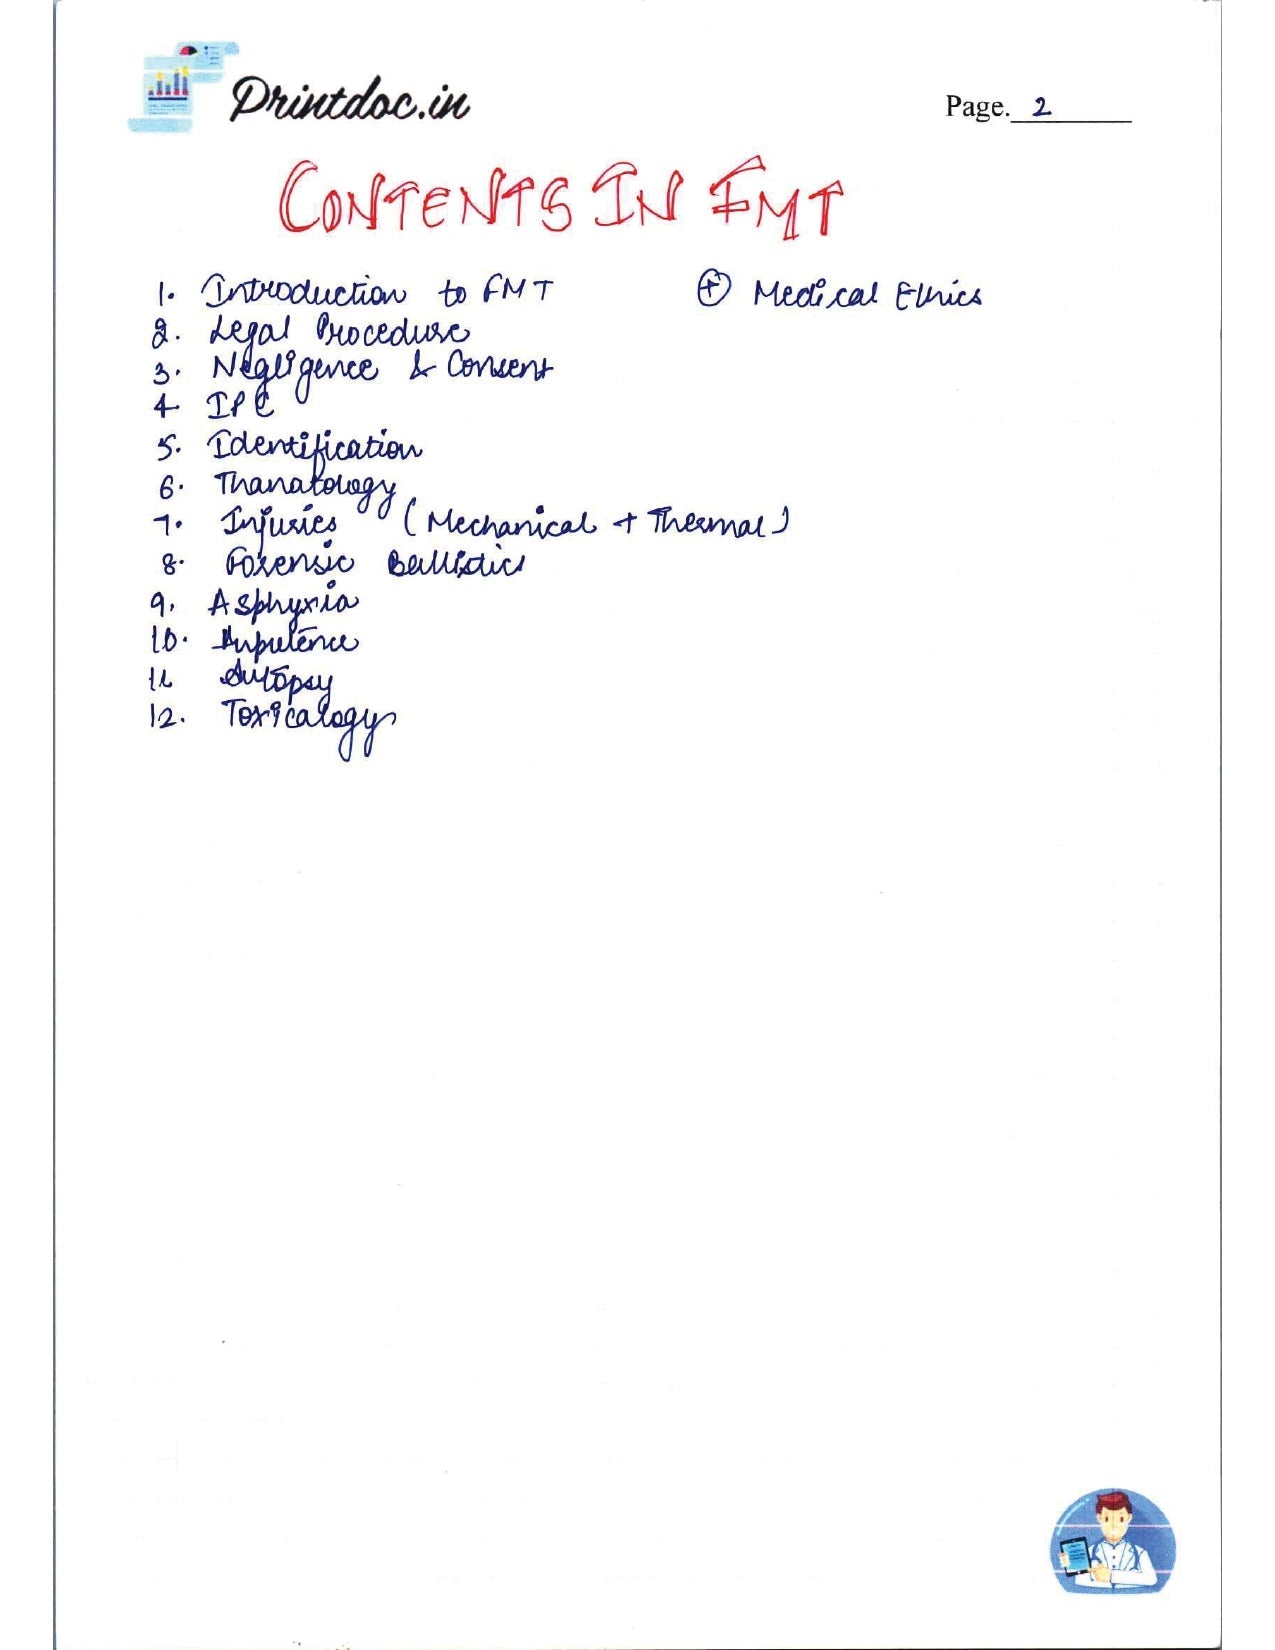 Printdoc.in
Page. 2
CONTENTS IN FMT
1. Introduction to FMT
⊕ Medical Ethics
2. Legal Procedure
3. Negligence & Consent
4. IPC
5. Identification
6. Thanatology
7. Injuries (Mechanical + Thermal)
8. Forensic Ballistics
9. Asphyxia
10. Impotence
11. Autopsy
12. Toxicalogy